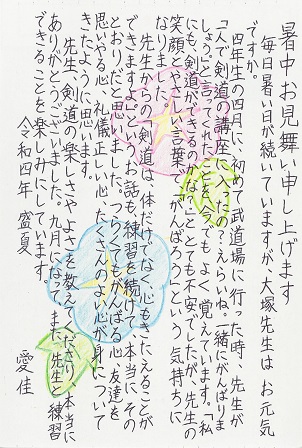 暑中お見舞い申し上げます
毎日暑い日が続いていますが、大塚先生はお元気
ですか。
四年生の四月に、初めて武道場に行った時、先生が
「一人で剣道の講座に入るの？えらいね。一緒にがんばりま
しょう」と言ってくれたことを、今でもよく覚えています。「私
にも、剣道ができるのかな」ととても不安でしたが、先生の
笑顔とやさしい言葉で「がんばろう」という気持ちに
できます」というお話も、練習を続けて、本当にその
先生からの「剣道は、体だけでなく、心もきたえることが
とおりだと思いました。つらくてもがんばる心、友達を
思いやる心、礼儀正しい心、たくさんのよい心が身について
きたように思います。
先生、剣道の楽しさやよさを教えてくださり、本当に
ありがとうございました。九月になって、また先生と練習
できることを楽しみにしています。
令和四年 盛夏
愛佳